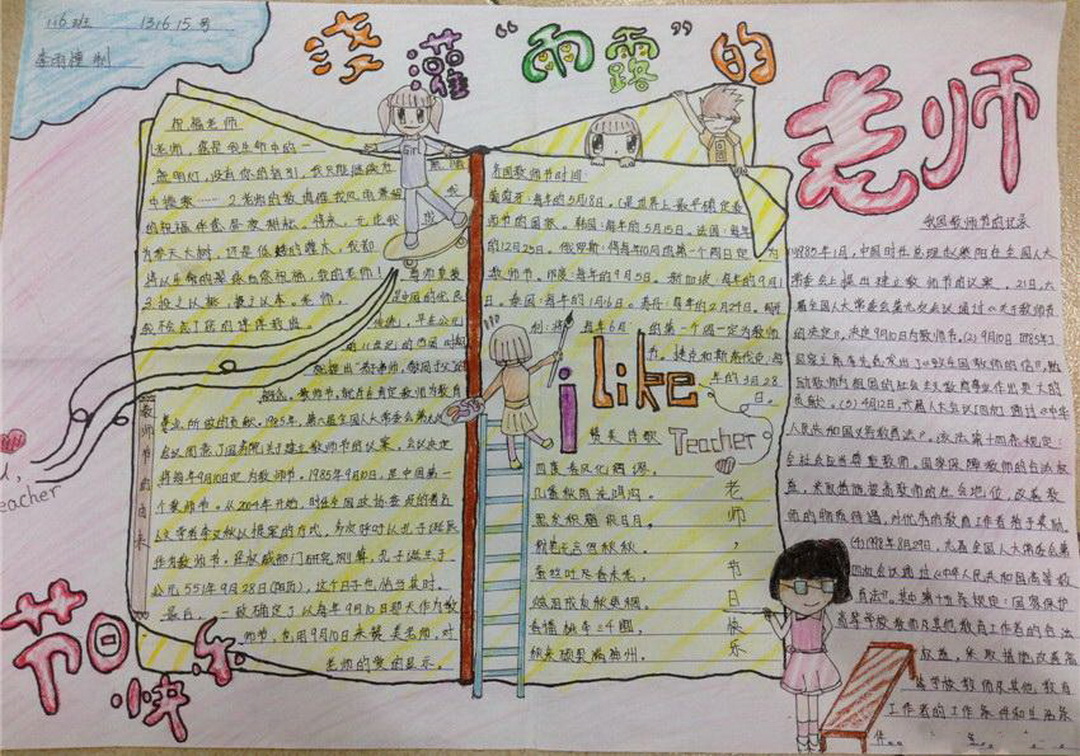 116班 131615号
浇灌“雨露”的
老师
祝福老师
1老师,您是我生命中的一
盏明灯,没有你的指引,我只能继续在黑暗
中摸索……
为参天大树,还是低矮的灌木,我都
将以生命的翠绿向您祝福,我的老师!
尊师重教
是中国的优良
传统,早在公元
概念。教师节,旨在肯定教师为教育
事业所做的贡献。1985年,第六届全国人大常委会第九次
会议同意了国务院关于建立教师节的议案,会议决定
将每年9月10日定为教师节。1985年9月10日,是中国第一
个教师节。从2004年开始,时任全国政协委员的著名
人文学者李汉秋以提案的方式,多次呼吁以孔子诞辰
作为教师节。经权威部门研究测算,孔子诞生于
公元551年9月28日(阳历),这个日子也恰当其时。
最后,一致确定了以每年9月10日那天作为教
师节,也用9月10日来赞美老师,对
老师的爱的显示。
教师节的由来
各国教师节时间:
葡萄牙:每年的5月18日。(是世界上最早确定教
师节的国家。韩国:每年的5月15日。法国:每年
的12月25日。俄罗斯:将每年10月的第一个周日定为
教师节。印度:每年的9月5日。新加坡:每年的9月1
日。泰国:每年的1月16日。
利:将每年6月的第一个周一定为教师
节。捷克和斯洛伐克:每
年的3月28
日。
i like
Teacher
赞美诗歌
四度春风化绸缪,
几番秋雨洗鸿沟。
黑发积霜织日月,
粉笔无言写春秋。
蚕丝吐尽春未老,
烛泪成灰秋更稠。
春播桃李三千圃,
秋来硕果满神州。
老师,节日快乐
我国教师节的记录
1985年1月,中国时任总理赵紫阳在全国人大
常委会上提出建立教师节的议案。21日,六
届全国人大常委会第九次会议通过《关于教师节
的决定》,决定9月10日为教师节。(2)9月10日1985年了
国家主席李先念发出了《致全国教师的信》,鼓
励教师为祖国的社会主义教育事业作出更大的
贡献。(3)4月12日,六届人大会议[四次]通过《中华
人民共和国义务教育法》。该法第十四条规定:
全社会应当尊重教师。国家保障教师的合法权
益,采取措施提高教师的社会地位,改善教
师的物质待遇,对优秀的教育工作者给予奖励。
(4)1998年8月29日,九届全国人大常委会第
四次会议通过《中华人民共和国高等教
育法》。其中第十五条规定:国家保护
高等学校教师及其他教育工作者的合法
权益,采取措施改善高
等学校教师及其他教育
工作者的工作条件和生活条
件。
节日快乐